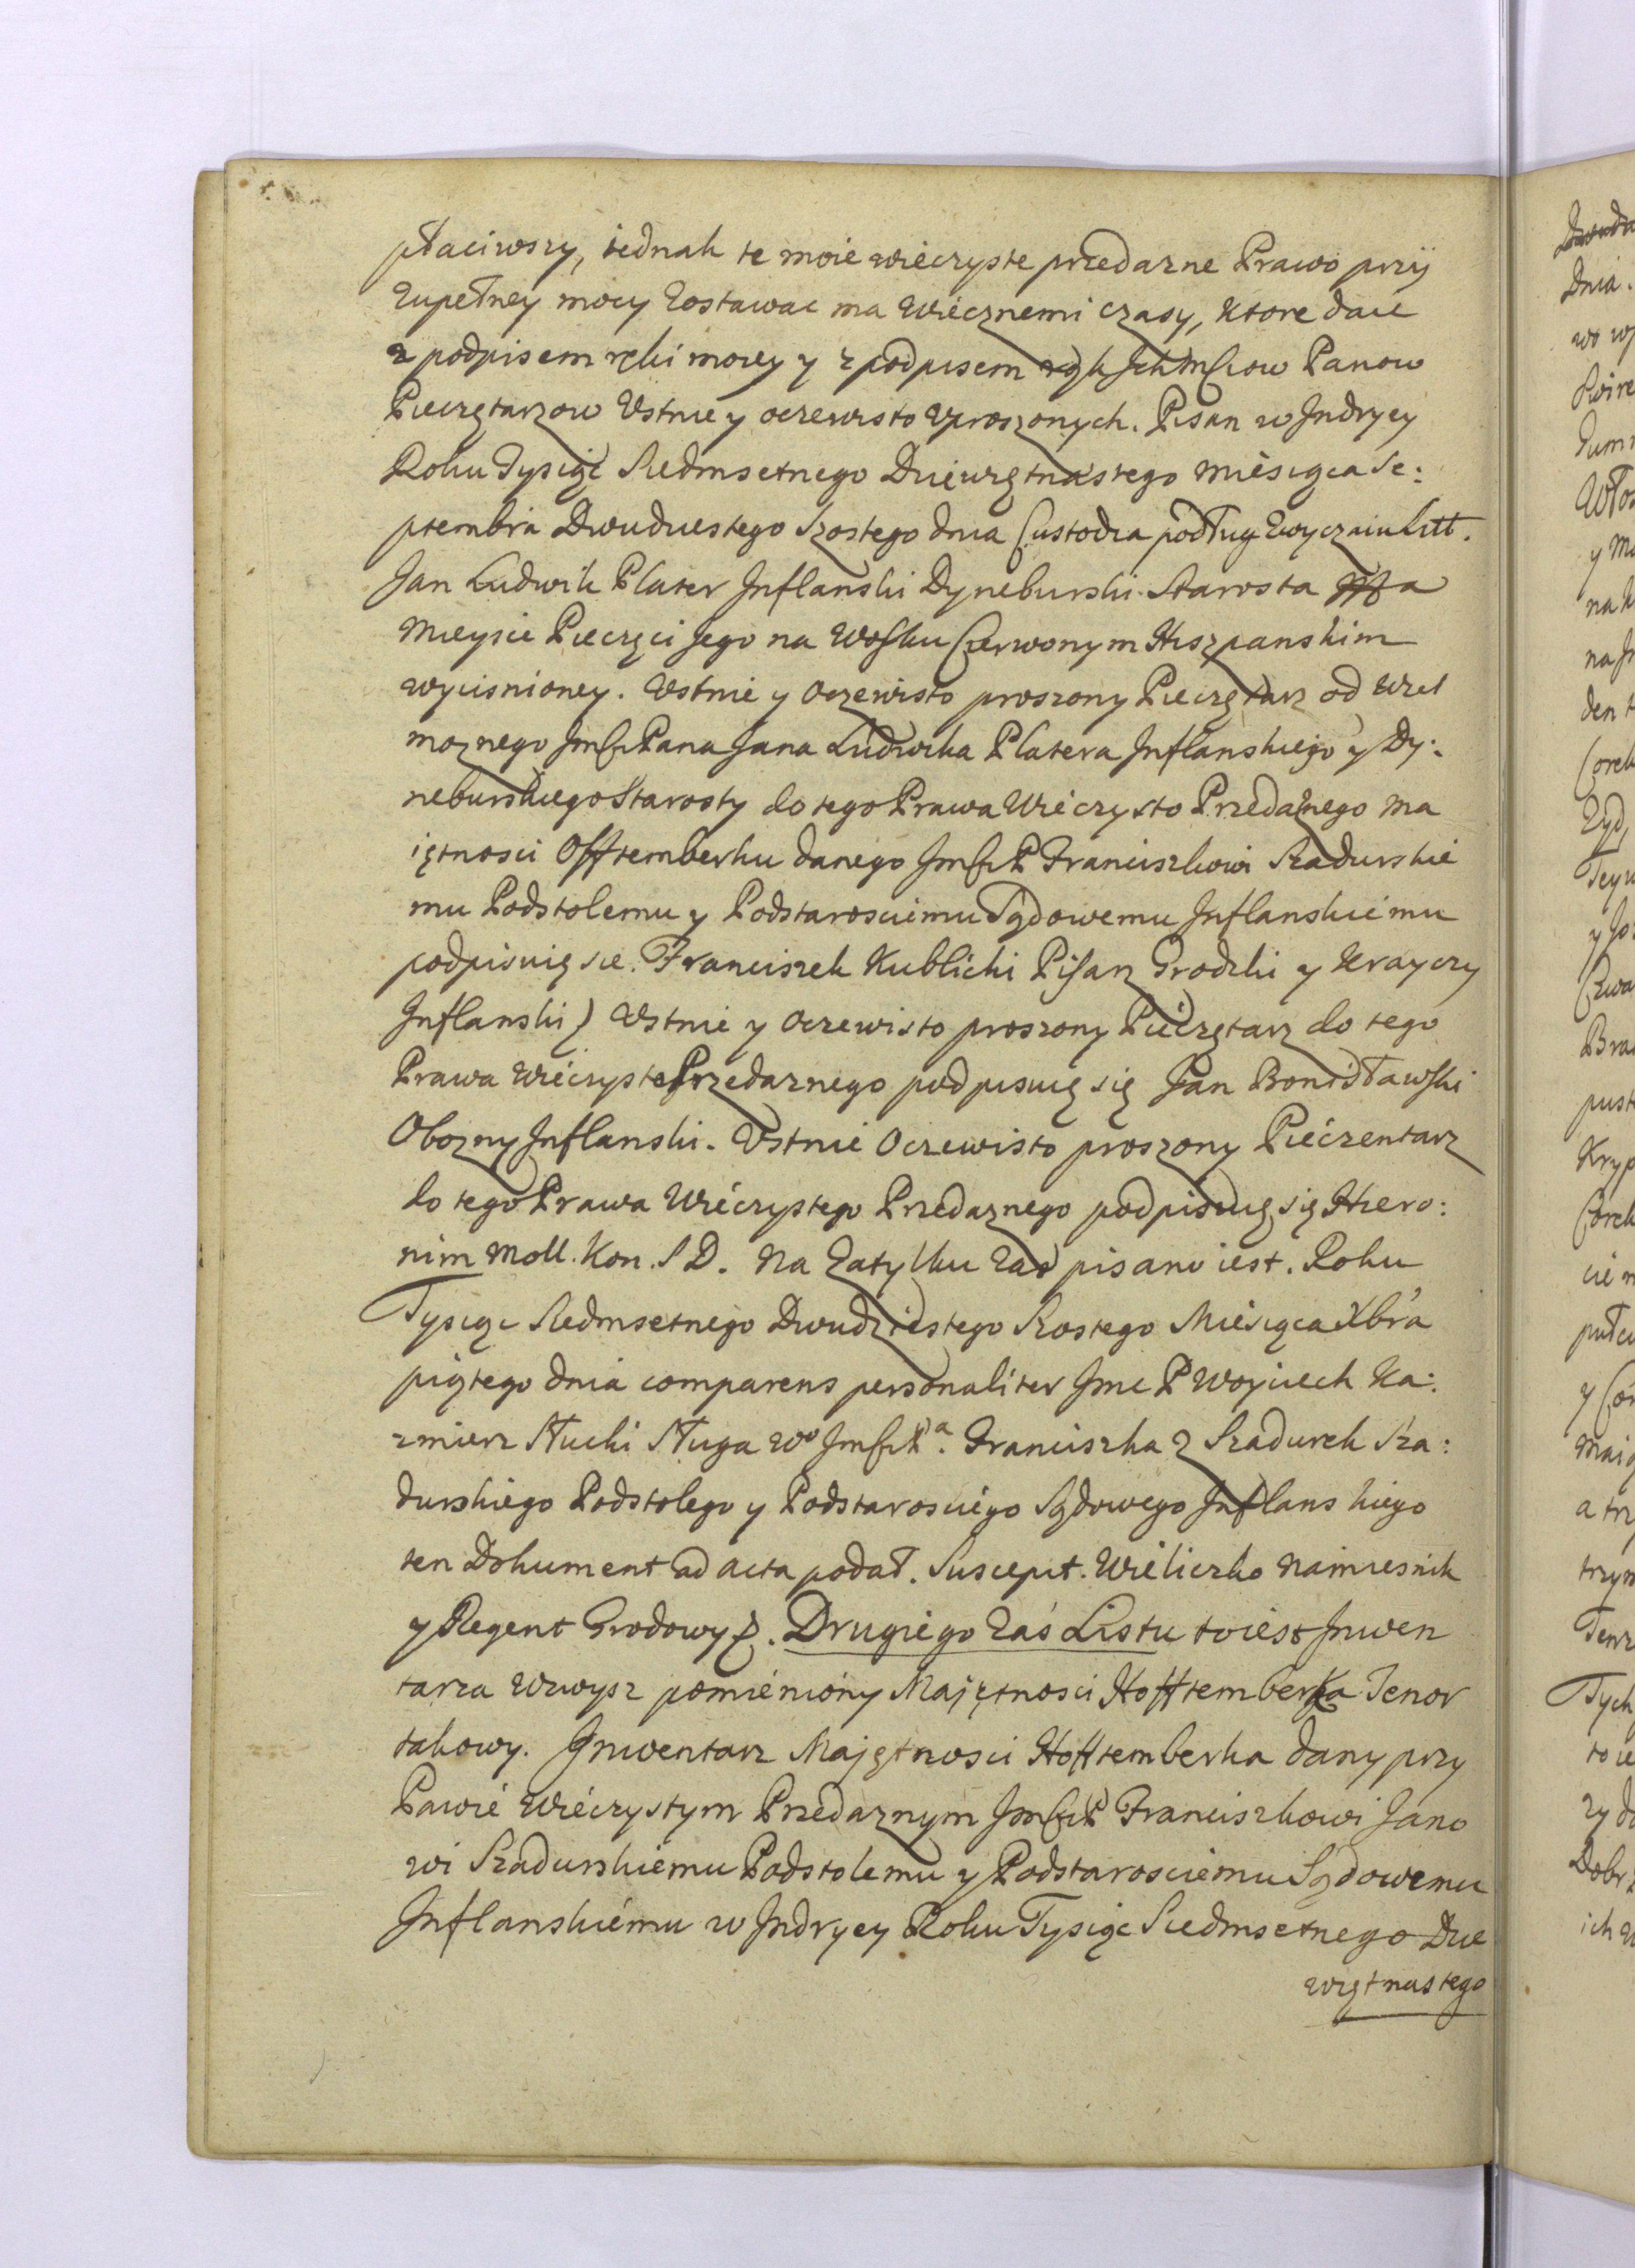 płaciwszy, iednak te moie wieczyste przedazne Prawo przÿ
zupełney mocy zostawac ma wiecznemi czasy, ktore daie
z podpisem ręki moiey y z podpisem rąk Ich Mściow Panow
Pieczętarzow Vstnie y oczewisto vproszonych. Pisan w Indrycy
Roku Tysiąc Siedmsetnego Dziewiętnastego miesiąca Se:
ptembra Dwudziestego szostego dnia Custodia podług zwyczaiu Litt.
Jan Ludwik Plater Inflanski Dyneburski Starosta a
Mieysce Pieczęci Jego na Wosku Czerwonym Hiszpanskim
wycisnioney. Vstnie y Oczewisto proszony Pieczętarz od Wiel
moznego Jmści Pana Jana Ludwika Platera Inflanskiego y Dy:
neburskiego Starosty do tego Prawa Wieczysto Przedaznego Ma
iętnosci Offtemberku danego Jmści P Franciszkowi Szadurskie
mu Podstolemu y Podstarosciemu Sądowemu Inflanskiemu
podpisuię sie. Franciszek Kublicki Pisarz Grodzki y Krayczy
Inflanski) Vstnie y Oczewisto proszony Pieczętarz do tego
Prawa Wieczysto Przedaznego podpisuię się Jan Bonisławski
Obozny Inflanski. Vstnie Oczewisto proszony Pieczentarz
do tego Prawa Wieczystego Przedaznego podpisuię się Hiero:
nim Moll. Kon. S D. Na Zatylku zas pisano iest. Roku
Tysiąc Siedmsetnego Dwudziestego Szostego Miesiąca Xbra
piątego dnia comparens personaliter Jmc P Woyciech Ka:
zmierz Słucki Sługa Wo Jmści Pa. Franciszka z Szadurek Sza:
durskiego Podstolego y Podstarosciego Sądowego Inflanskiego
ten Dokument ad acta podał. Suscepit. Wieliczko Namiesnik
y Regent Grodowy). Drugiego zaś Listu to iest Inwen
tarza wzwysz pomieniony Majętnosci Hofftemberka Tenor
takowy. Inwentarz Majętnosci Hofftemberka dany przy
Pawie Wieczystym Przedaznym Jmści P Franciszkowi Jano
wi Szadurskiemu Podstolemu y Podstarosciemu Sądowemu
Inflanskiemu w Indrycy Roku Tysiąc Siedmsetnego Dzie
więtnastego